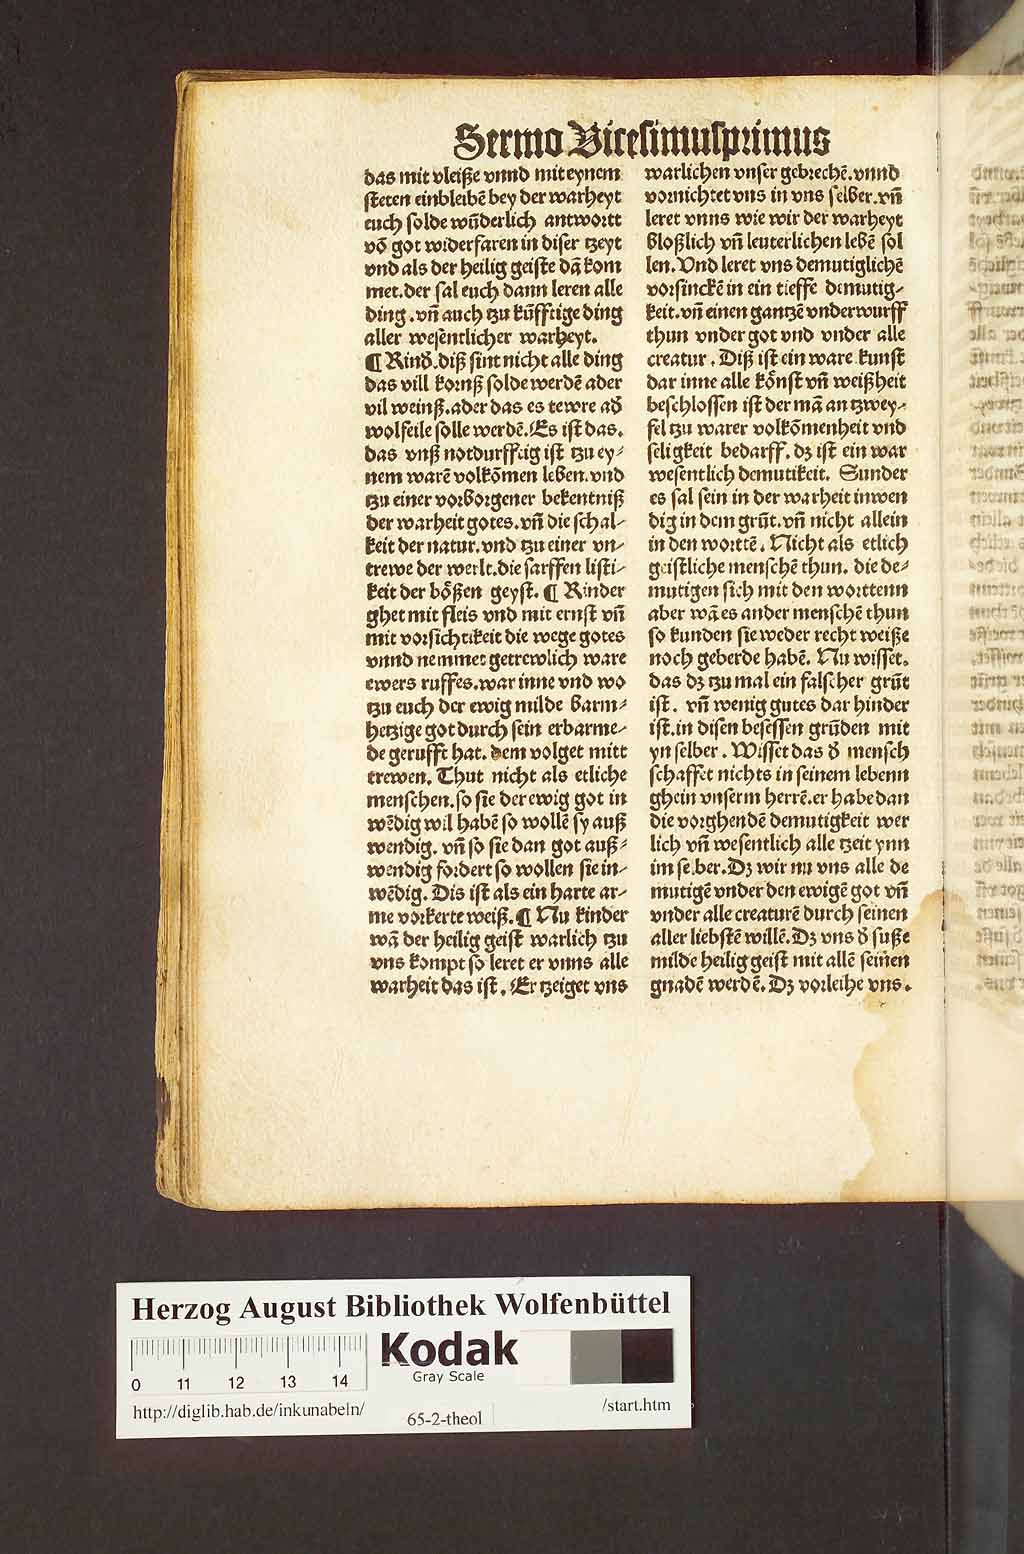 Sermo Vicesimusprimus
das mit vleiße vnnd mit eynem
steten einbleibē bey der warheyt
euch solde wūderlich antwortt
vō got widerfaren in diser tzeyt
vnd als der heilig geiste dā kom
met.der sal euch dann leren alle
ding.vn̄ auch tzu kūfftige ding
aller wesentlicher warheyt.
¶ Rind̄.diß sint nicht alle ding
das vill kornß solde werdē aber
vil weinß.aber das es tewre ad̄
wolfeile solle werdē.Es ist das.
das vnß notdurfftig ist tzu ey⸗
nem warē volkōmen leben.vnd
tzu einer vorborgener bekentniß
der warheit gotes.vn̄ die schal⸗
keit der natur.vnd tzu einer vn⸗
trewe der werlt.die sarffen listi⸗
keit der bößen geyst. ¶ Rinder
ghet mit fleis vnd mit ernst vn̄
mit vorsichtikeit die wege gotes
vnnd nemmet getrewlich ware
ewers ruffes.war inne vnd wo
tzu euch der ewig milde barm⸗
hetzige got durch sein erbarme⸗
de gerufft hat. dem volget mitt
trewen. Thut nicht als etliche
menschen.so sie der ewig got in
wēdig wil habē so wollē sy auß
wendig. vn̄ so sie dan got auß⸗
wendig fordert so wollen sie in⸗
wēdig. Dis ist als ein harte ar⸗
me vorkerte weiß.¶ Nu kinder
wā der heilig geist warlich tzu
vns kompt so leret er vnns alle
warheit das ist. Er tzeiget vns
warlichen vnser gebrechē.vnnd
vornichtet vns in vns selber.vn̄
leret vnns wie wir der warheyt
bloßlich vn̄ leuterlichen lebē sol
len.Vnd leret vns demutiglichē
vorsinckē in ein tieffe demutig⸗
keit.vn̄ einen gantzē vnderwurff
thun vnder got vnd vnder alle
creatur. Diß ist ein ware kunst
dar inne alle kōnst vn̄ weißheit
beschlossen ist der mā an tzwey⸗
fel tzu warer volkōmenheit vnd
seligkeit bedarff. dz ist ein war
wesentlich demutikeit. Sunder
es sal sein in der warheit inwen
dig in dem grūt.vn̄ nicht allein
in den worttē. Nicht als etlich
geistliche menschē thun. die de⸗
mutigen sich mit den worttenn
aber wā es ander menschē thun
so kunden sie weder recht weiße
noch geberde habē. Nu wisset.
das dz tzu mal ein falscher grūt
ist. vn̄ wenig gutes dar hinder
ist.in disen besessen grūden mit
yn selber. Wisset das d̄ mensch
schaffet nichts in seinem lebenn
ghein vnserm herrē.er habe dan
die vorghendē demutigkeit wer
lich vn̄ wesentlich alle tzeit ynn
im selber.Dz wir nu vns alle de
mutigē vnder den ewigē got vn̄
vnder alle creaturē durch seinen
aller liebstē willē.Dz vns d̄ suße
milde heilig geist mit allē seinen
gnadē werdē.Dz vorleihe vns.
Herzog August Bibliothek Wolfenbüttel
0 11 12 13 14
Kodak
Gray Scale
http://diglib.hab.de/inkunabeln/
65-2-theol
/start.htm